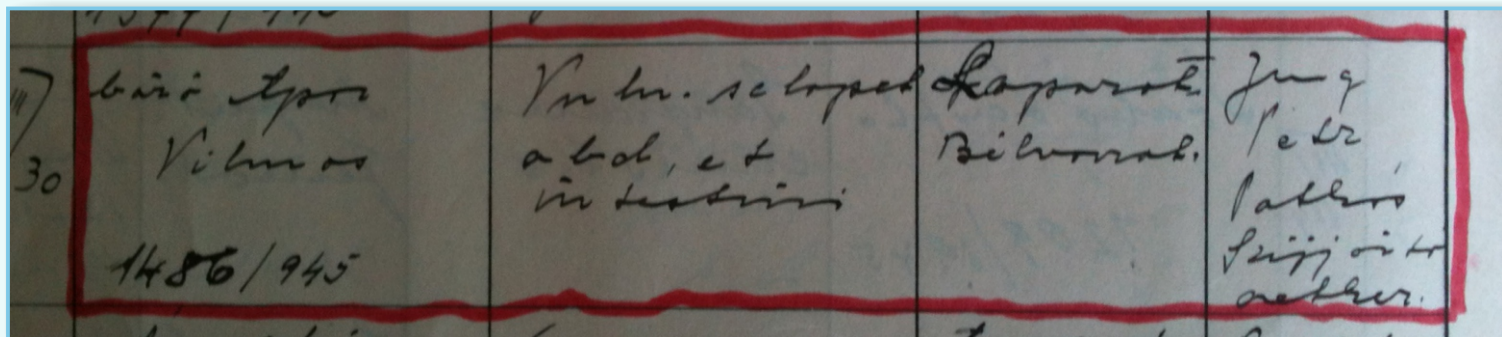 III/
30
báró Apor
Vilmos
1486/945
Vuln. sclopet
abd. et
intestini
Laparot.
Bélvarrat.
Jung
Petz
Pathós
Szijjártó
aether.